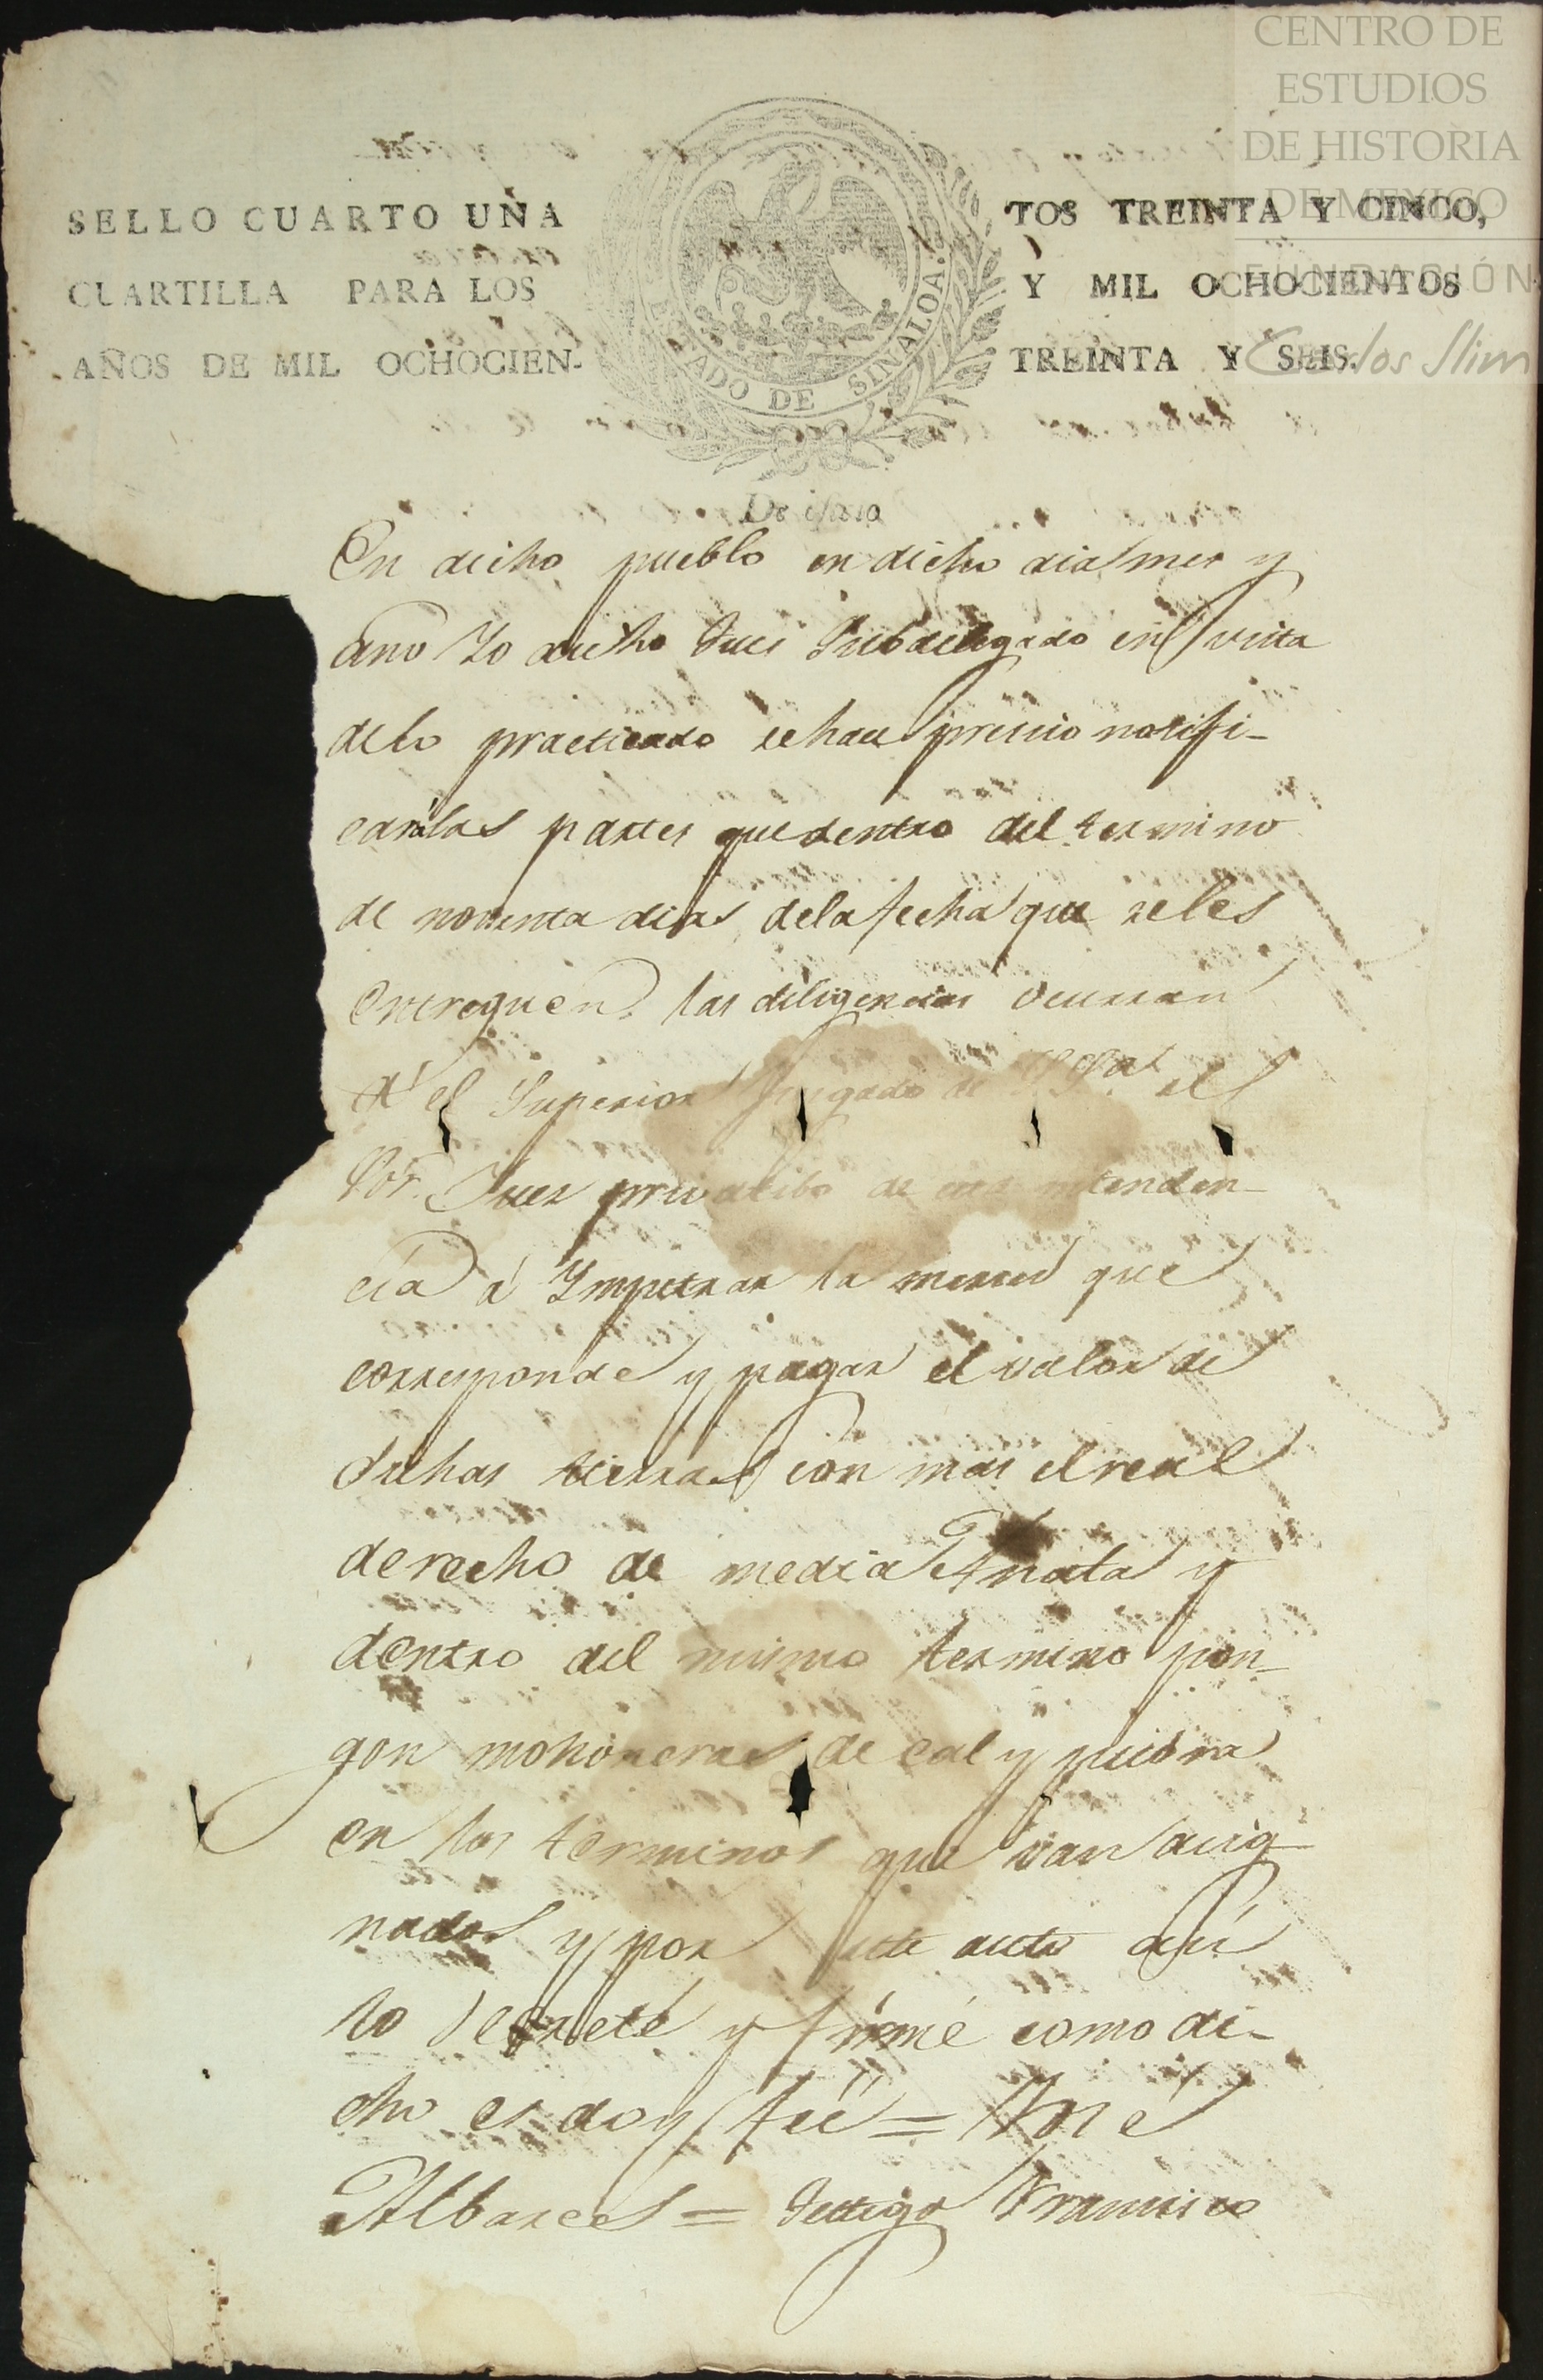 CENTRO DE
ESTUDIOS
DE HISTORIA
DE MEXICO
FUNDACIÓN
Carlos Slim
SELLO CUARTO UNA
CUARTILLA PARA LOS
AÑOS DE MIL OCHOCIEN-
ESTADO DE SINALOA.
TOS TREINTA Y CINCO,
Y MIL OCHOCIENTOS
TREINTA Y SEIS.
De oficio
En dicho pueblo en dicho dia mes y
año Yo dicho Jues Subdelegado en vista
delo practicado se hace preciso notifi-
carálas partes que dentro del termino
de noventa dias dela fecha que seles
entreguen las diligencias ocurran
á el Superior Jusgado de el
Sor. Juez privatibo de esta intenden-
cia á Ympetrar la merced que
corresponde y pagar el valor de
dichas tierras con mas el real
derecho de media Anata y
dentro del mismo termino pon-
gan mohoneras de cal y piedra
en los terminos que van acig-
nados y por este auto asi
lo decreté y firmé como di-
cho es doy feé = José
Albares = Testigo Francisco